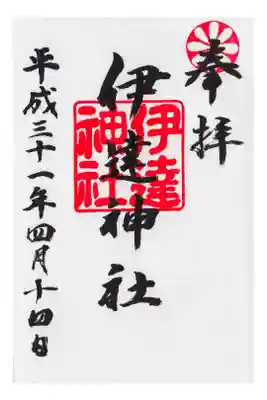 奉拝
伊達神社
伊達
神社
平成三十一年四月十四日